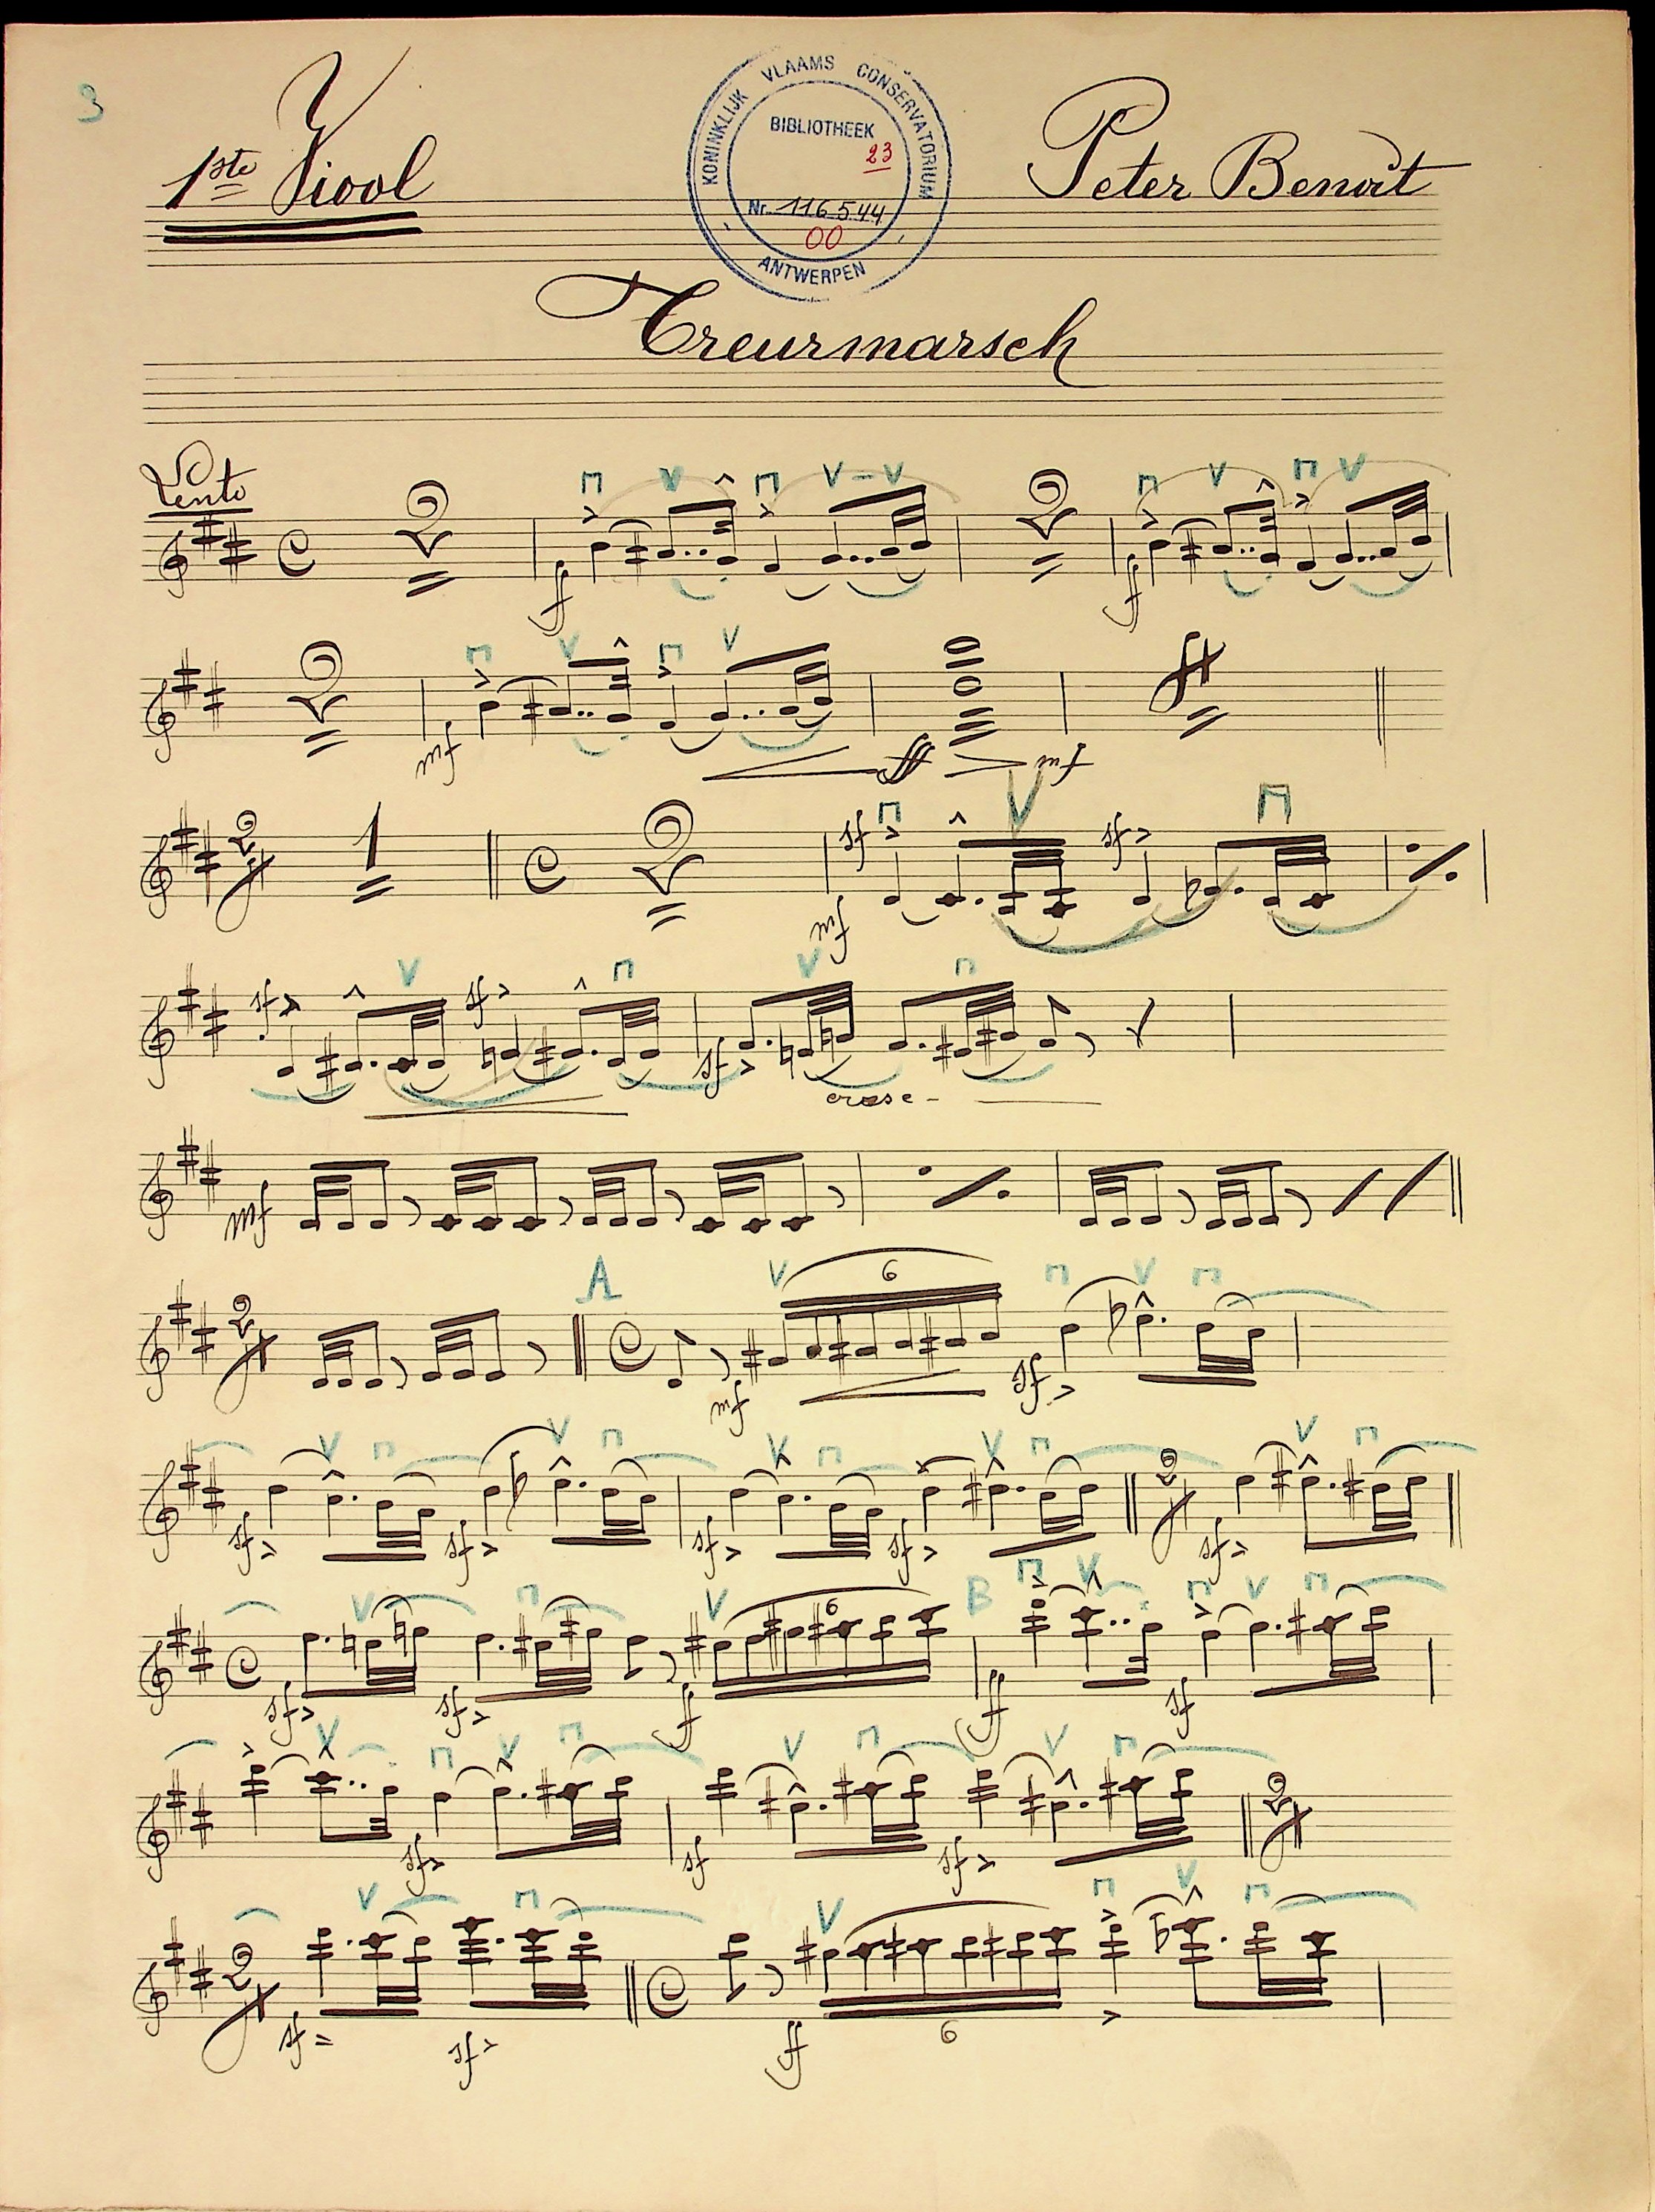 3
1ste Viool
KONINKLIJK VLAAMS CONSERVATORIUM
BIBLIOTHEEK
23
Nr. 116.544
00
ANTWERPEN
Peter Benoit
Treurmarsch
Lento
2 ff 2 ff
2 mf ff mf 4
2/4 1 2 mf sf sf
sf sf sf cresc -
mf
2/4 A mf 6 sf
sf sf sf sf 2/4 sf
sf sf ff 6 B ff sf
sf sf sf 2/4
2/4 sf sf ff 6